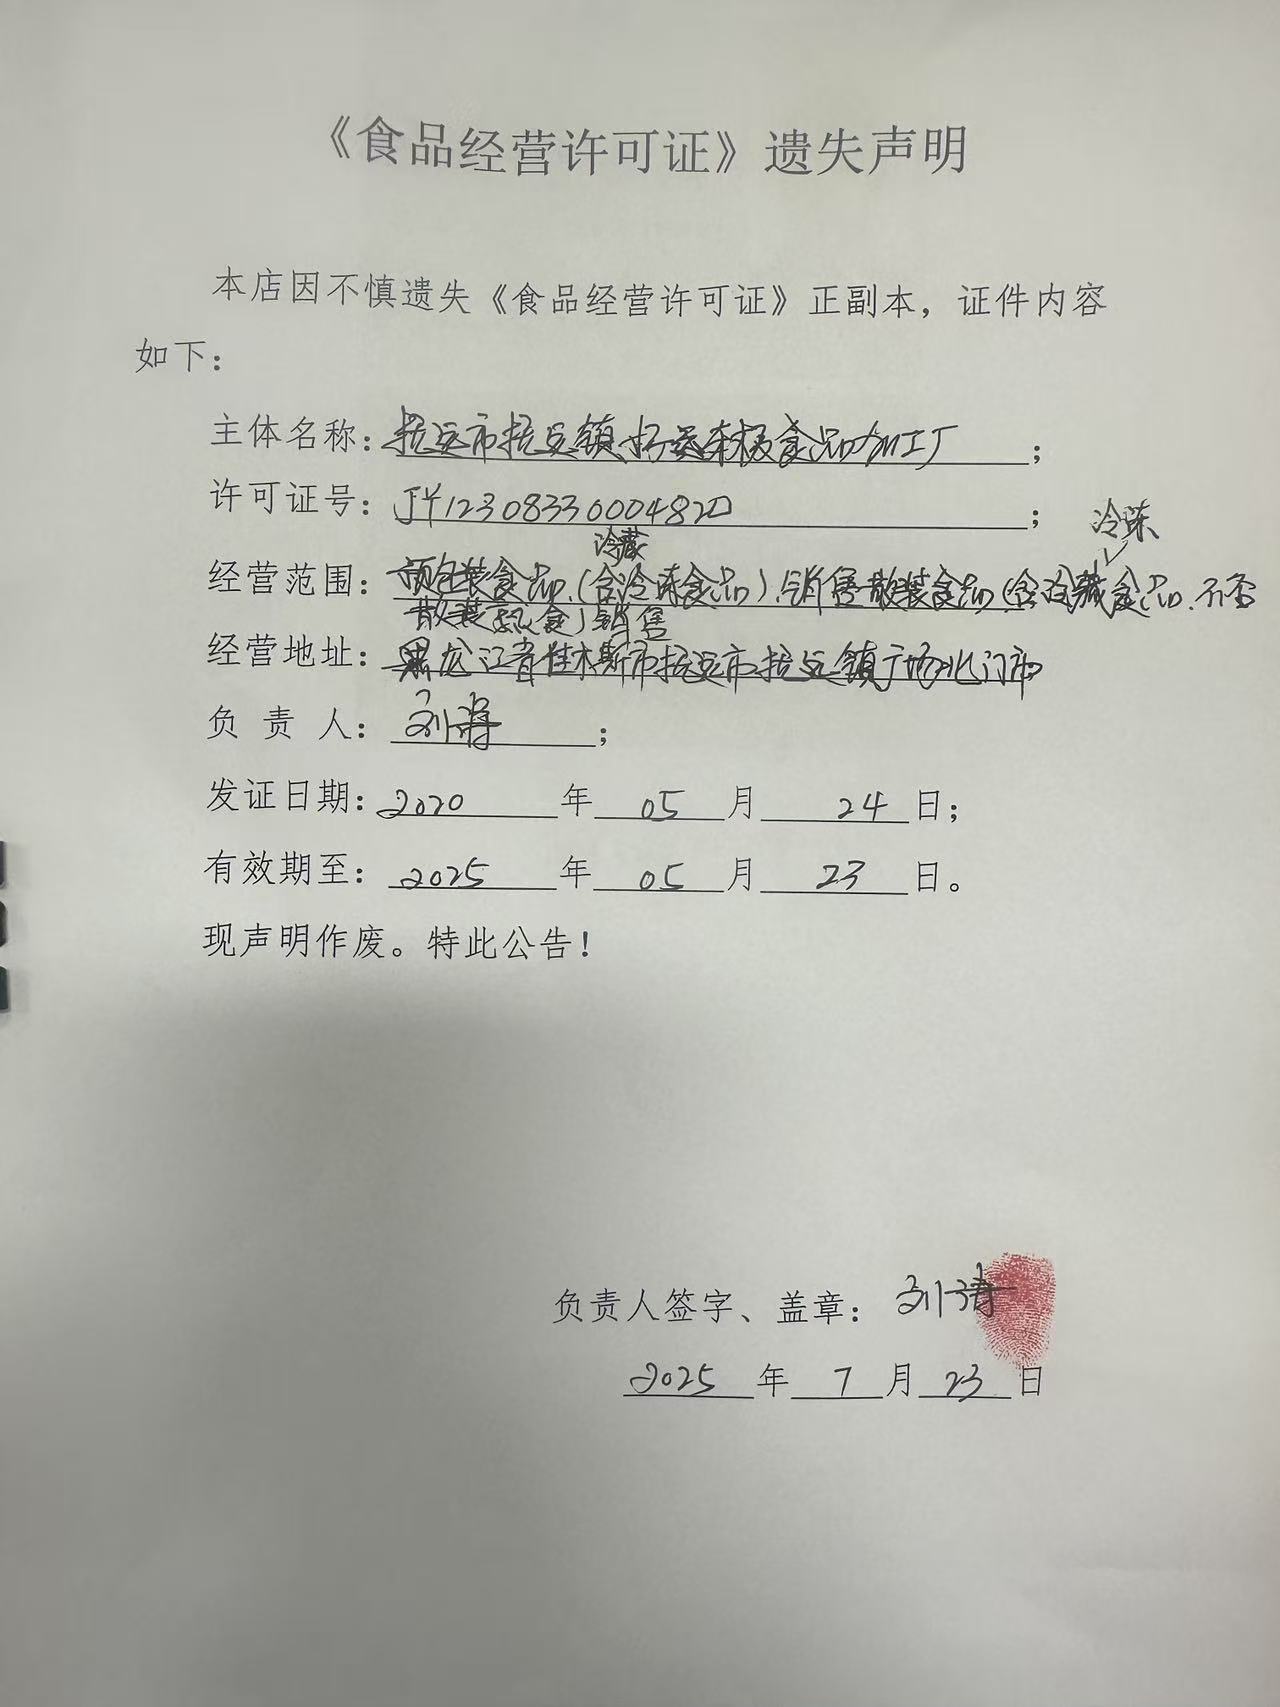 《食品经营许可证》遗失声明
本店因不慎遗失《食品经营许可证》正副本，证件内容
如下：
主体名称：抚远市抚远镇好运东极食品加工厂；
许可证号：JY12308330004820；
冷冻
冷藏
经营范围：预包装食品（含冷冻食品）销售散装食品（含冷藏食品、不含
散装熟食）销售
经营地址：黑龙江省佳木斯市抚远市抚远镇广场北门市
负 责 人：刘涛；
发证日期：2020年05月24日；
有效期至：2025年05月23日。
现声明作废。特此公告！
负责人签字、盖章：刘涛
2025年7月23日